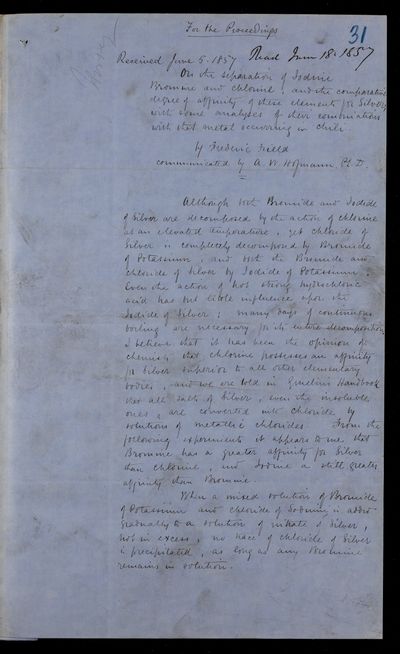 For the Proceedings
31
Received June 5. 1857 Read June 18. 1857
On the separation of Iodine
Bromine and chlorine, and the comparative
degree of affinity of these elements for Silver,
with some analyses of their combinations
with that metal occurring in Chili.
by Frederic Field
communicated by A. W. Hofmann, Ph. D.
Although both Bromide and Iodide
of Silver are decomposed by the action of chlorine
at an elevated temperature, yet chloride of
Silver is completely decomposed by Bromide
of Potassium, and both the Bromide and
chloride of Silver by Iodide of Potassium.
Even the action of hot strong hydrochloric
acid has but little influence upon the
Iodide of Silver; many days of continuous
boiling are necessary for its entire decomposition.
I believe that it has been the opinion of
chemists that chlorine possesses an affinity
for Silver superior to all other elementary
bodies, and we are told in Gmelin's Handbook
that all salts of Silver, even the insoluble
ones, are converted into chloride by
solutions of metallic chlorides. From the
following experiments it appears to me that
Bromine has a greater affinity for Silver
than chlorine, and Iodine a still greater
affinity than Bromine.
When a mixed solution of Bromide
of Potassium and chloride of Sodium is added
gradually to a solution of nitrate of Silver,
not in excess, no trace of chloride of Silver
is precipitated, as long as any Bromine
remains in solution.